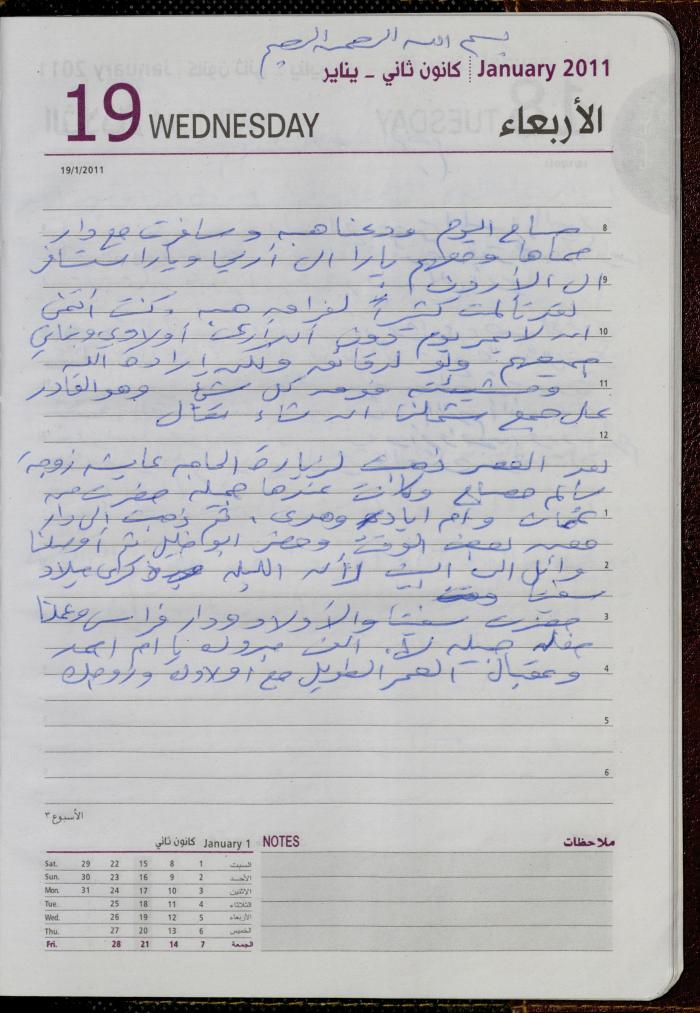 بسم الله الرحمن الرحيم
January 2011 كانون ثاني - يناير
19 WEDNESDAY الأربعاء
19/1/2011
8
صباح اليوم ودعنا هبه وسافرت مع دار
حماها ومعهم يارا الى أريحا ويارا ستسافر
9
الى الأردن
لقد تألمت كثيراً لفراق هبه وكنت أتمنى
10
ان لا يمر يوم دون ان أرى أولادي وبناتي
جميعهم ولو لدقائق ولكن إرادة الله
11
ومشيئته فوق كل شئ وهو القادر
على جمع شملنا ان شاء تعالى
12
بعد العصر ذهبت لزيارة الحاجه عايشه زوجة
سالم مصباح وكانت عندها جميله حضرت من
1
عمان وأم اياد وهدى، ثم ذهبت الى دار
لبعض الوقت وحضر ابو خليل ثم أوصلنا
2
وائل الى البيت لأن الليله ذكرى ميلاد
3
حضرت والأولاد ودار فراس وعملنا
حفله جميله لها. الف مبروك يا ام احمد
4
وعقبال العمر الطويل مع أولادك وزوجك
5
6
الأسبوع ٣
January 1 كانون ثاني
Sat. 29 22 15 8 1 السبت
Sun. 30 23 16 9 2 الأحد
Mon. 31 24 17 10 3 الاثنين
Tue. 25 18 11 4 الثلاثاء
Wed. 26 19 12 5 الأربعاء
Thu. 27 20 13 6 الخميس
Fri. 28 21 14 7 الجمعة
NOTES ملاحظات